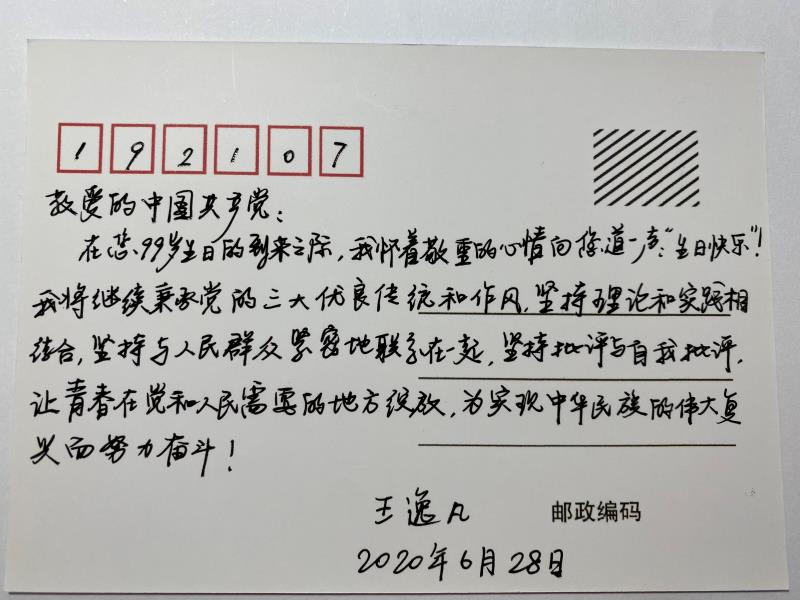 192107
敬爱的中国共产党:
在您99岁生日的到来之际,我怀着敬重的心情向您道一声:“生日快乐”!
我将继续秉承党的三大优良传统和作风,坚持理论和实践相
结合,坚持与人民群众紧密地联系在一起,坚持批评与自我批评,
让青春在党和人民需要的地方绽放,为实现中华民族的伟大复
兴而努力奋斗!
王逸凡
邮政编码
2020年6月28日